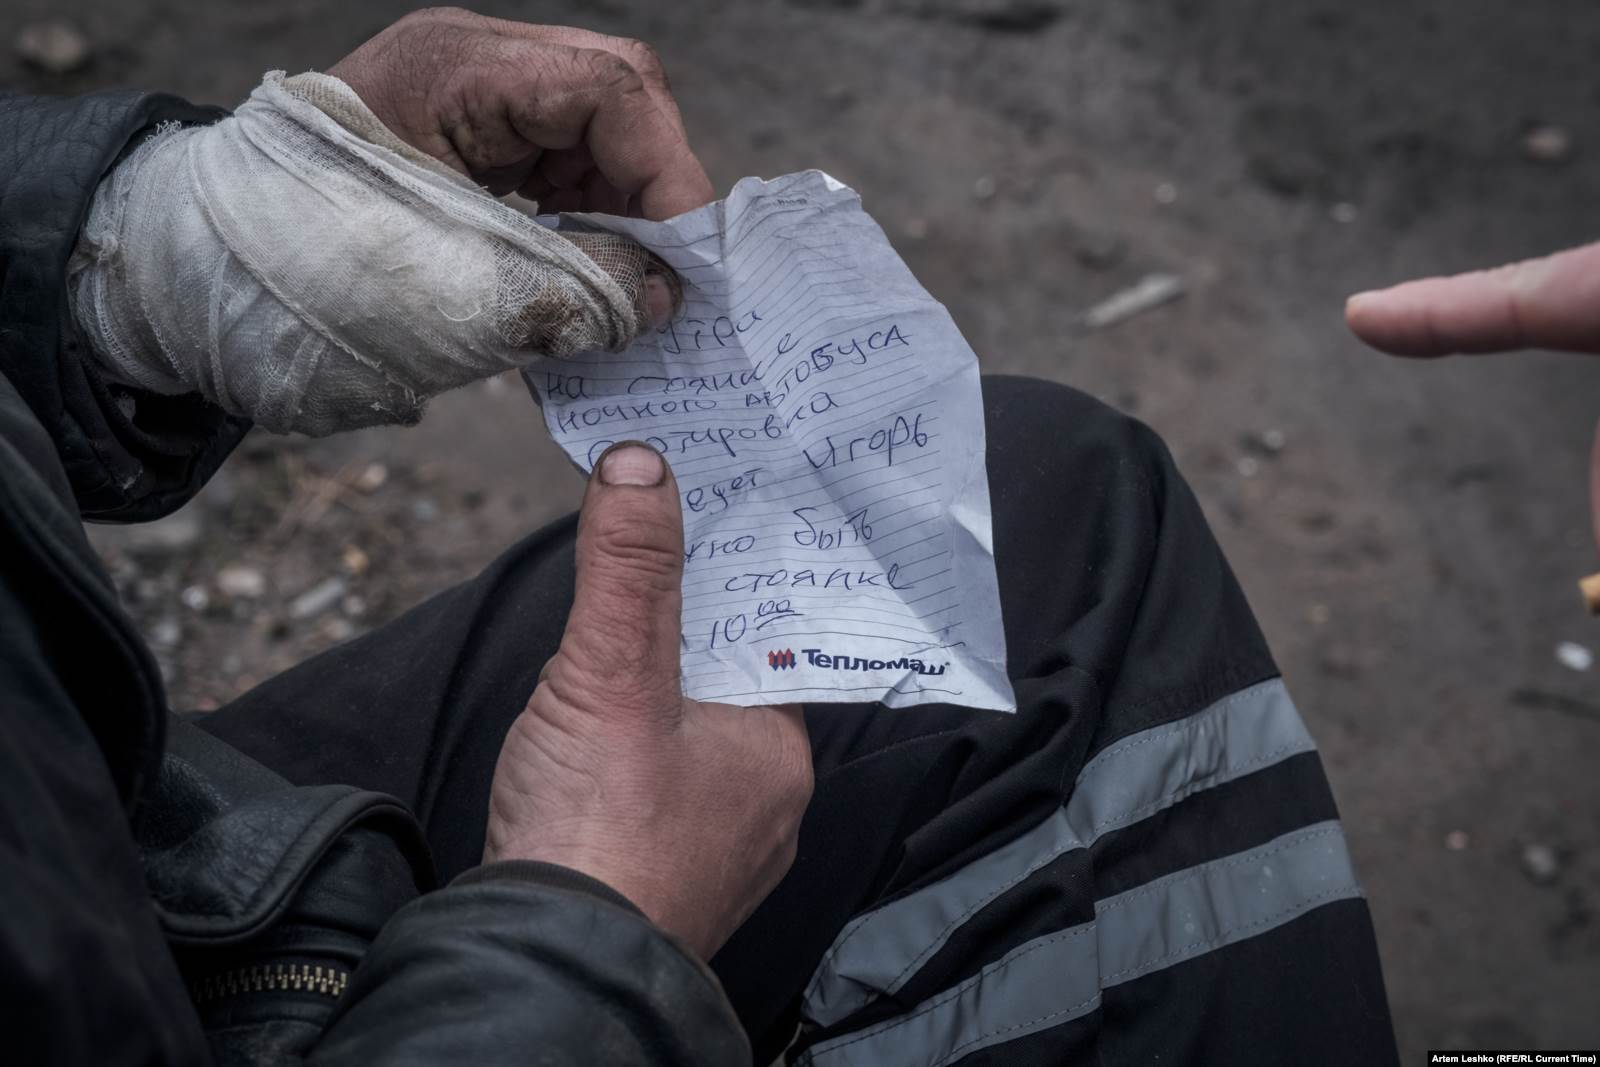 утра
на стоянке
ночного автобуса
сортировка
едет Игорь
жно быть
стоянке
10 00
Тепломаш
Artem Leshko (RFE/RL Current Time)